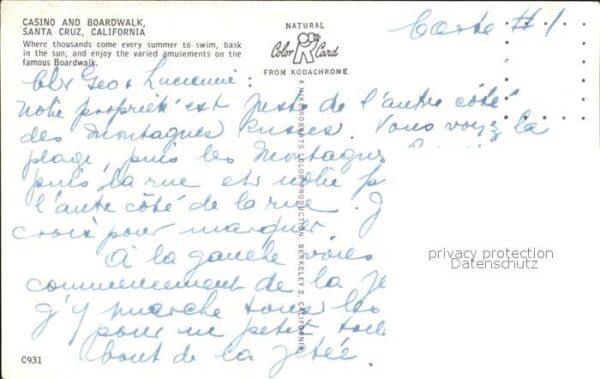 CASINO AND BOARDWALK,
SANTA CRUZ, CALIFORNIA
Where thousands come every summer to swim, bask
in the sun, and enjoy the varied amusements on the
famous Boardwalk.
NATURAL
Color Card
FROM KODACHROME
Carte #1
Geo & Lucienne:
Notre propriété est juste de l'autre côté
des Montagnes Russes. Vous voyez la
plage, puis les Montagnes
puis la rue et notre p
l'autre côté de la rue. J
croix pour marquer
À la gauche
commencement de la je
j'y marche tous les
pour un petit tour
bout de la jetée.
A MIKE ROBERTS COLOR PRODUCTION, BERKELEY 2, CALIFORNIA
privacy protection
Datenschutz
C931